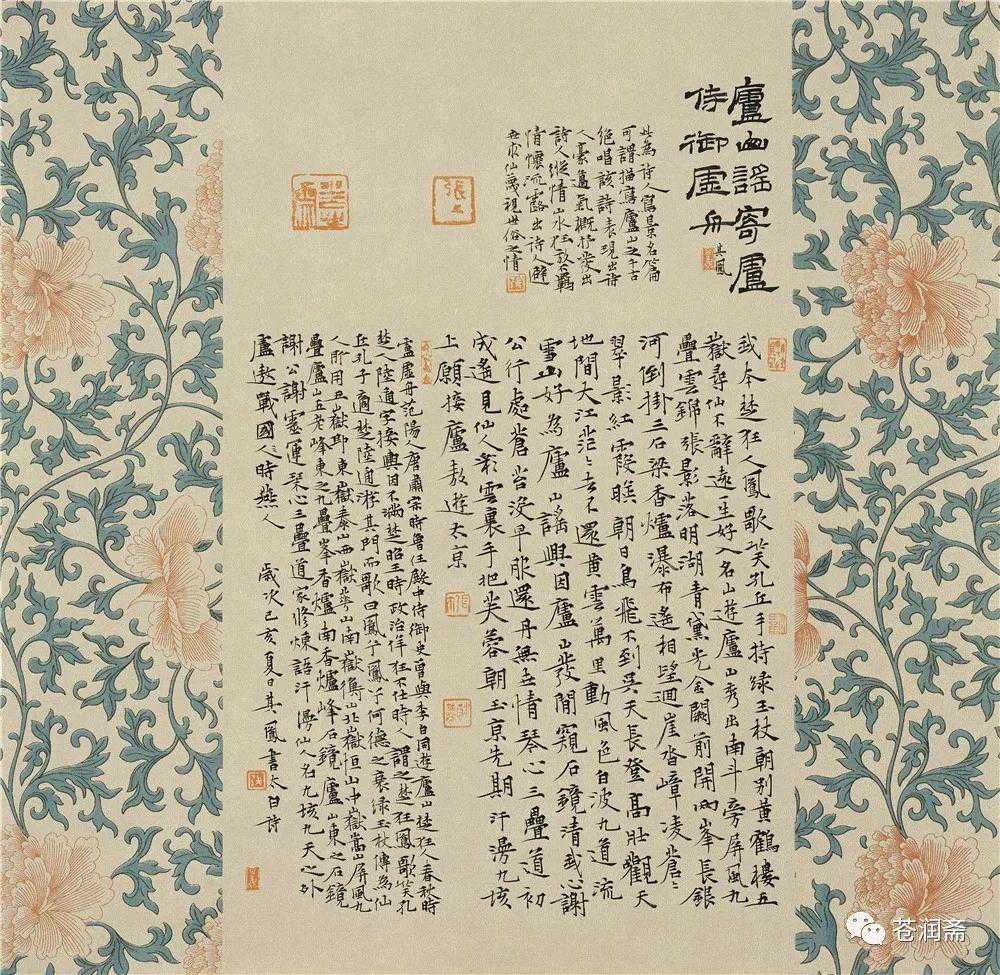 廬山謠寄廬
侍御虛舟
其鳳
此為詩人寫景名篇
可謂描寫廬山之千古
絕唱該詩表現出詩
人豪邁氣概抒發出
詩人縱情山水狂放不羈
情懷流露出詩人避
世求仙蔑視世俗之情
張
我本楚狂人鳳歌笑孔丘手持綠玉杖朝別黃鶴樓五
嶽尋仙不辭遠一生好入名山遊廬山秀出南斗旁屏風九
疊雲錦張影落明湖青黛光金闕前開兩峯長銀
河倒掛三石梁香爐瀑布遙相望迴崖沓嶂凌蒼〻
翠影紅霞暎朝日鳥飛不到吳天長登高壯觀天
地間大江茫〻去不還黃雲萬里動風色白波九道流
雪山好為廬山謠興因廬山發閒窺石鏡清我心謝
公行處蒼苔沒早服還丹無世情琴心三疊道初
成遙見仙人彩雲裏手把芙蓉朝玉京先期汗漫九垓
上願接廬敖遊太京
盧虛舟范陽人唐肅宗時曾任殿中侍御史曾與李白同遊廬山楚狂人春秋時
楚人陸通字接輿因不滿楚昭王時政治佯狂不仕時人謂之楚狂鳳歌笑孔
丘孔子適楚陸通游其門而歌曰鳳兮鳳兮何德之衰綠玉杖傳為仙
人所用五嶽即東嶽泰山西嶽華山南嶽衡山北嶽恒山中嶽嵩山屏風九
疊廬山五老峰東之九疊峯香爐南香爐峰石鏡廬山東之石鏡
謝公謝靈運琴心三疊道家修煉語汗漫仙人名九垓九天之外
廬敖戰國時燕人
歲次己亥夏日其鳳書太白詩
苍润斋